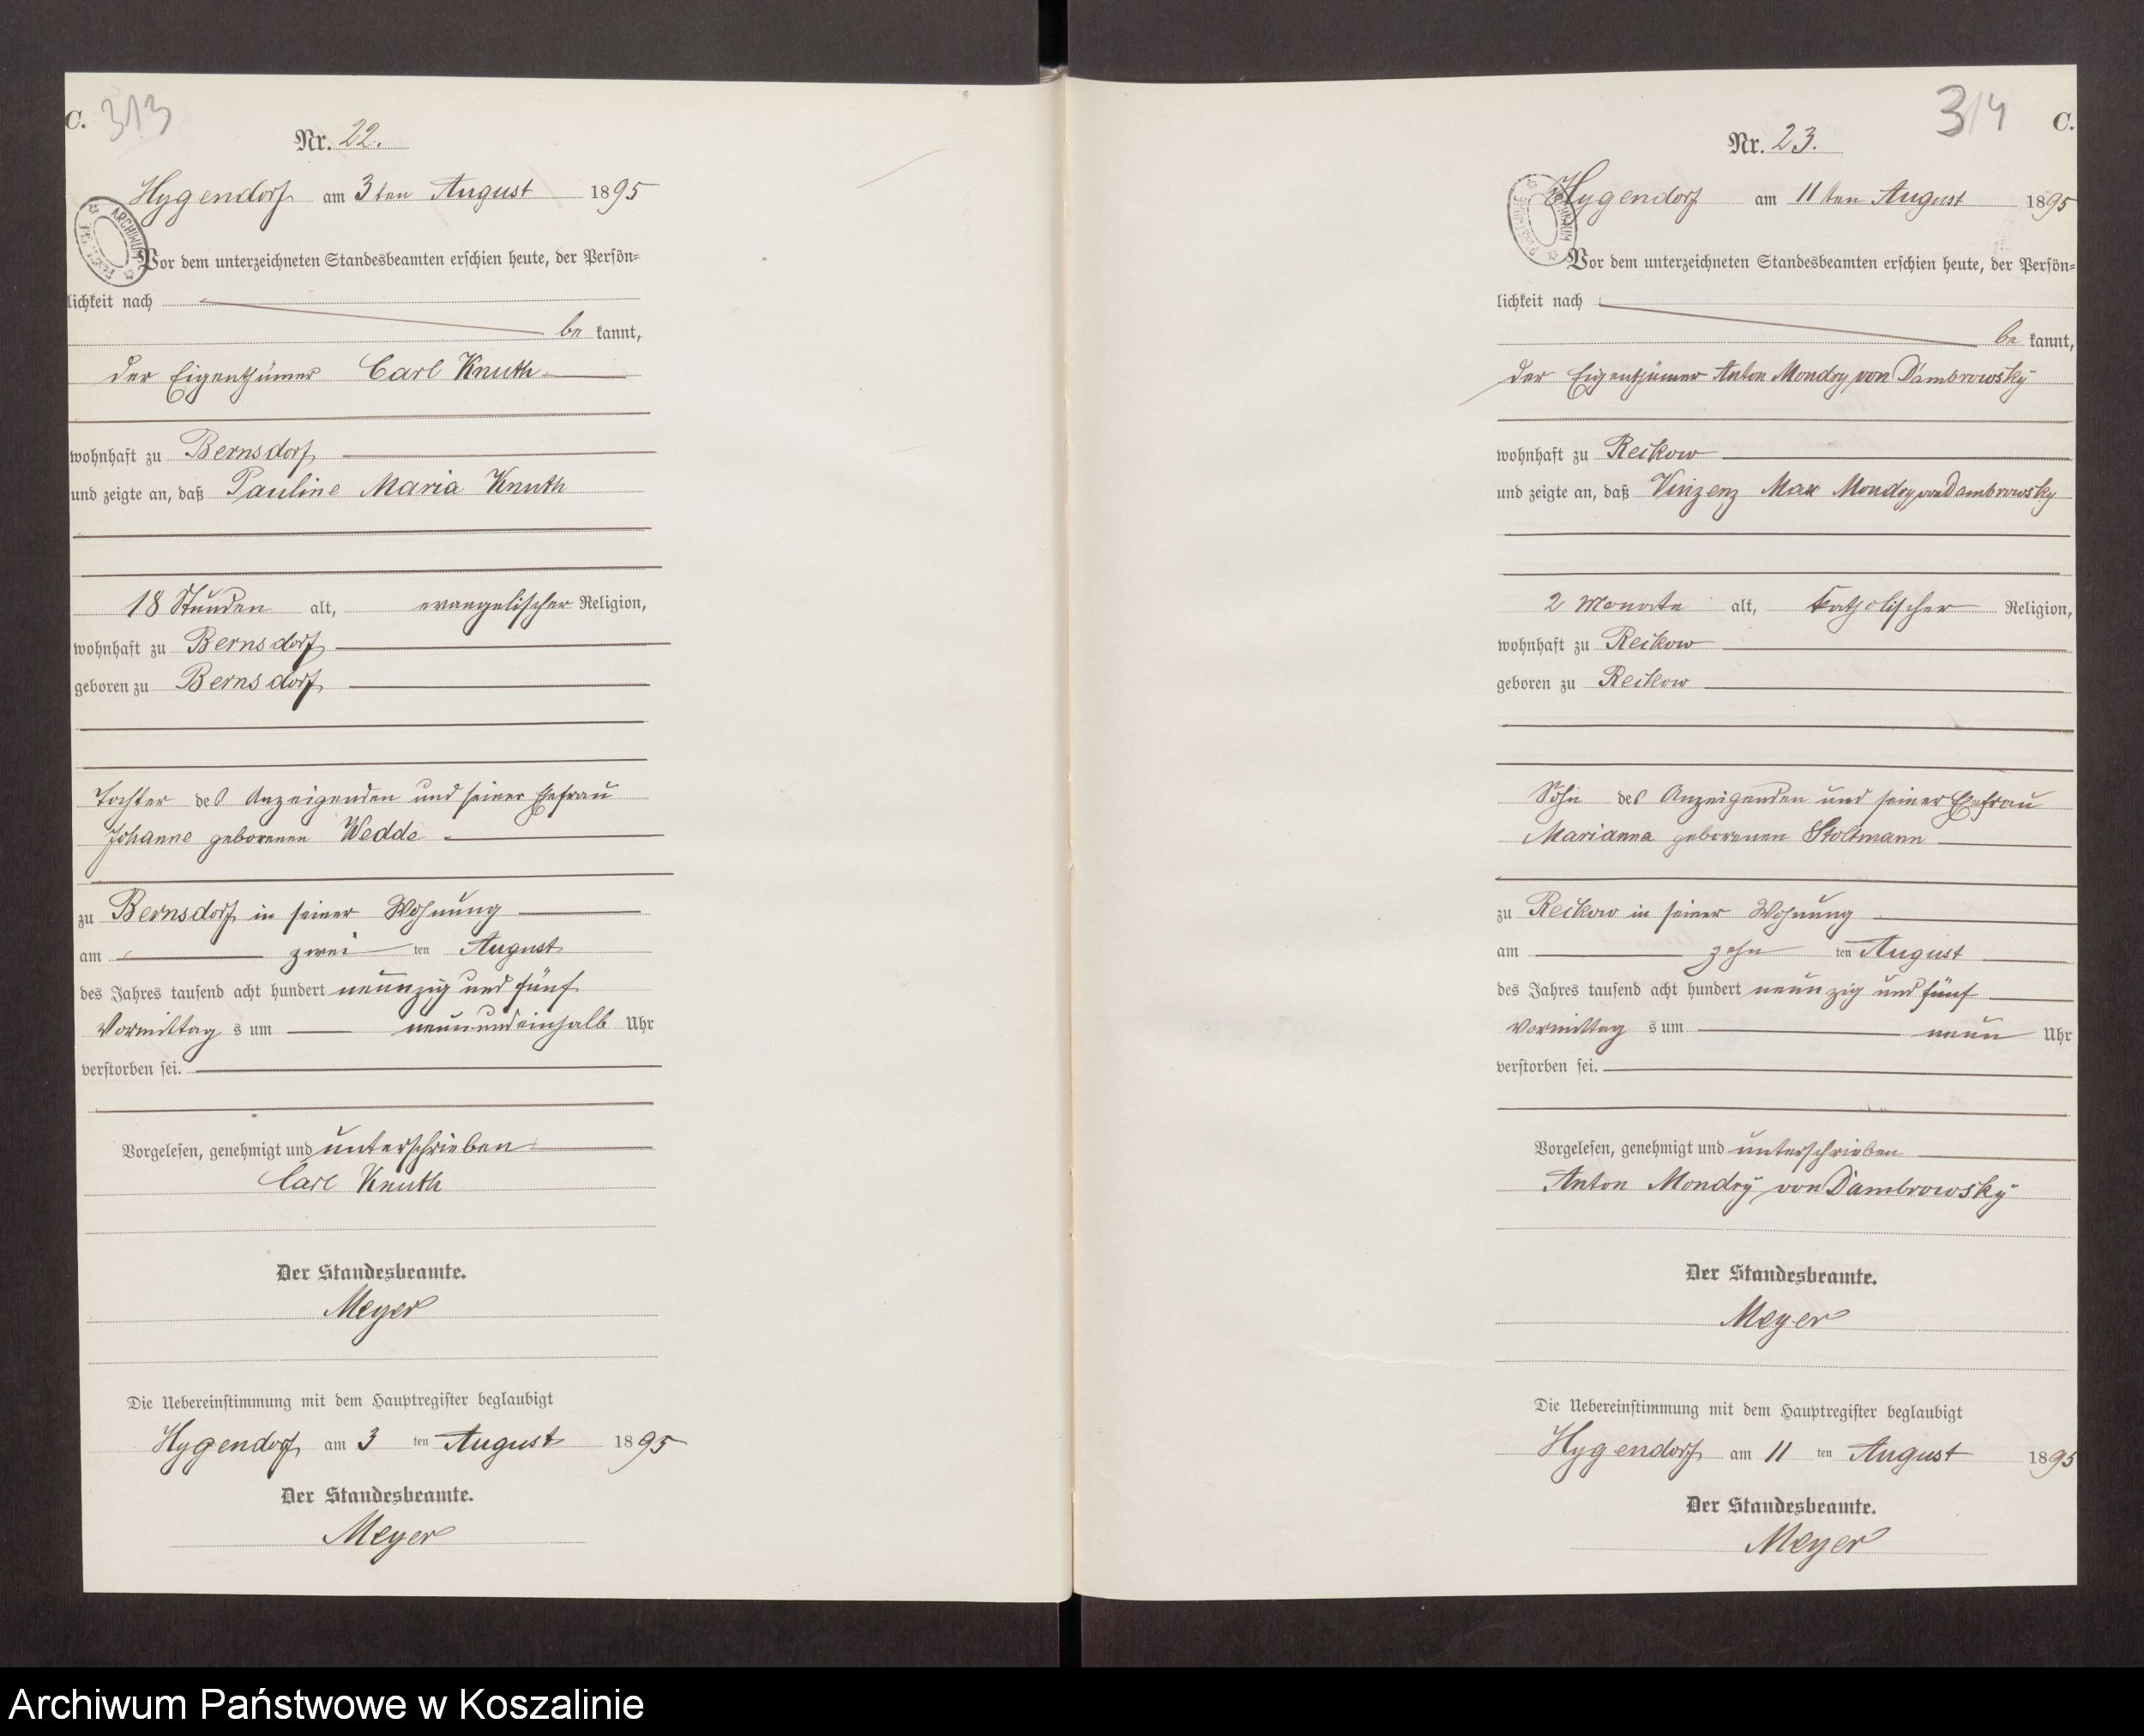 C. 313
Nr. 22.
Hygendorf am 3ten August 1895
Vor dem unterzeichneten Standesbeamten erschien heute, der Persön-
lichkeit nach
be kannt,
der Eigenthümer Carl Knuth
wohnhaft zu Bernsdorf
und zeigte an, daß Pauline Maria Knuth
18 Stunden alt, evangelischer Religion,
wohnhaft zu Bernsdorf
geboren zu Bernsdorf
Tochter des Anzeigenden und seiner Ehefrau
Johanne geborenen Wedde
zu Bernsdorf in seiner Wohnung
am zwei ten August
des Jahres tausend acht hundert neunzig und fünf
Vormittag s um neunundeinhalb Uhr
verstorben sei.
Vorgelesen, genehmigt und unterschrieben
Carl Knuth
Der Standesbeamte.
Meyer
Die Uebereinstimmung mit dem Hauptregister beglaubigt
Hygendorf am 3 ten August 1895
Der Standesbeamte.
Meyer
314 C.
Nr. 23.
Hygendorf am 11ten August 1895
Vor dem unterzeichneten Standesbeamten erschien heute, der Persön-
lichkeit nach
be kannt,
der Eigenthümer Anton Mondry von Dambrowsky
wohnhaft zu Reckow
und zeigte an, daß Vinzenz Max Mondry von Dambrowsky
2 Monate alt, katholischer Religion,
wohnhaft zu Reckow
geboren zu Reckow
Sohn des Anzeigenden und seiner Ehefrau
Marianna geborenen Stoltmann
zu Reckow in seiner Wohnung
am zehn ten August
des Jahres tausend acht hundert neunzig und fünf
Vormittag s um neun Uhr
verstorben sei.
Vorgelesen, genehmigt und unterschrieben
Anton Mondry von Dambrowsky
Der Standesbeamte.
Meyer
Die Uebereinstimmung mit dem Hauptregister beglaubigt
Hygendorf am 11 ten August 1895
Der Standesbeamte.
Meyer
Archiwum Państwowe w Koszalinie